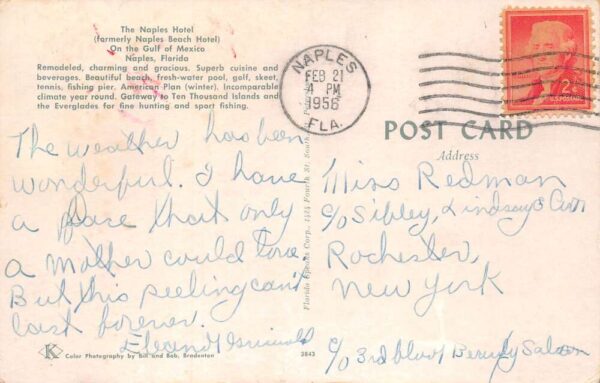 The Naples Hotel
(formerly Naples Beach Hotel)
On the Gulf of Mexico
Naples, Florida
Remodeled, charming and gracious. Superb cuisine and
beverages. Beautiful beach, fresh-water pool, golf, skeet,
tennis, fishing pier. American Plan (winter). Incomparable
climate year round. Gateway to Ten Thousand Islands and
the Everglades for fine hunting and sport fishing.
NAPLES
FEB 21
4 PM
1956
FLA.
2¢
U.S. POSTAGE
POST CARD
Address
The weather has been
wonderful. I have
a face that only
a mother could love
But this peeling can't
last forever.
Eleanor Griswold
Miss Redman
c/o Sibley, Lindsay & Curr
Rochester,
New York
c/o 3rd floor Beauty Saloon
Florida Speaks Corp., Fourth St. South,
K
Color Photography by Bill and Bob, Bradenton
3843